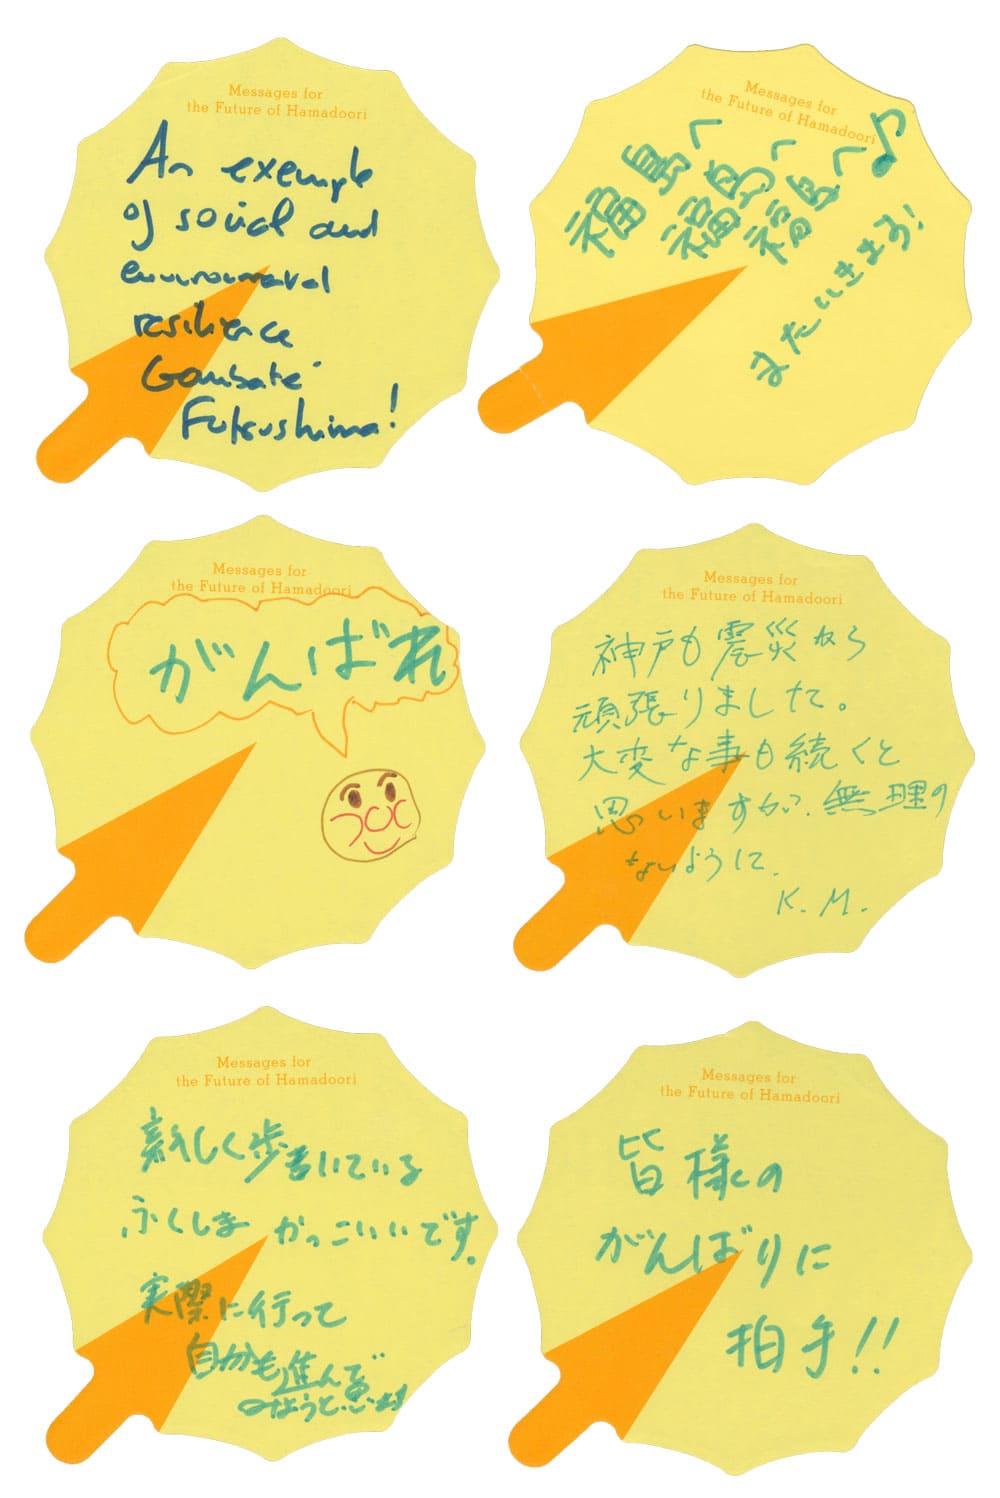 Messages for
the Future of Hamadoori
An example
of social and
environmental
resilience
Gambate
Fukushima!
Messages for
the Future of Hamadoori
福島へ
福島へ
福島へ♪
またいきまる!
Messages for
the Future of Hamadoori
がんばれ
Messages for
the Future of Hamadoori
神戸も震災から
頑張りました。
大変な事も続くと
思いますが、無理の
ないように。
K. M.
Messages for
the Future of Hamadoori
新しく歩いている
ふくしまかっこいいです。
実際に行って
自分も進んで
みようと思います
Messages for
the Future of Hamadoori
皆様の
がんばりに
拍手!!